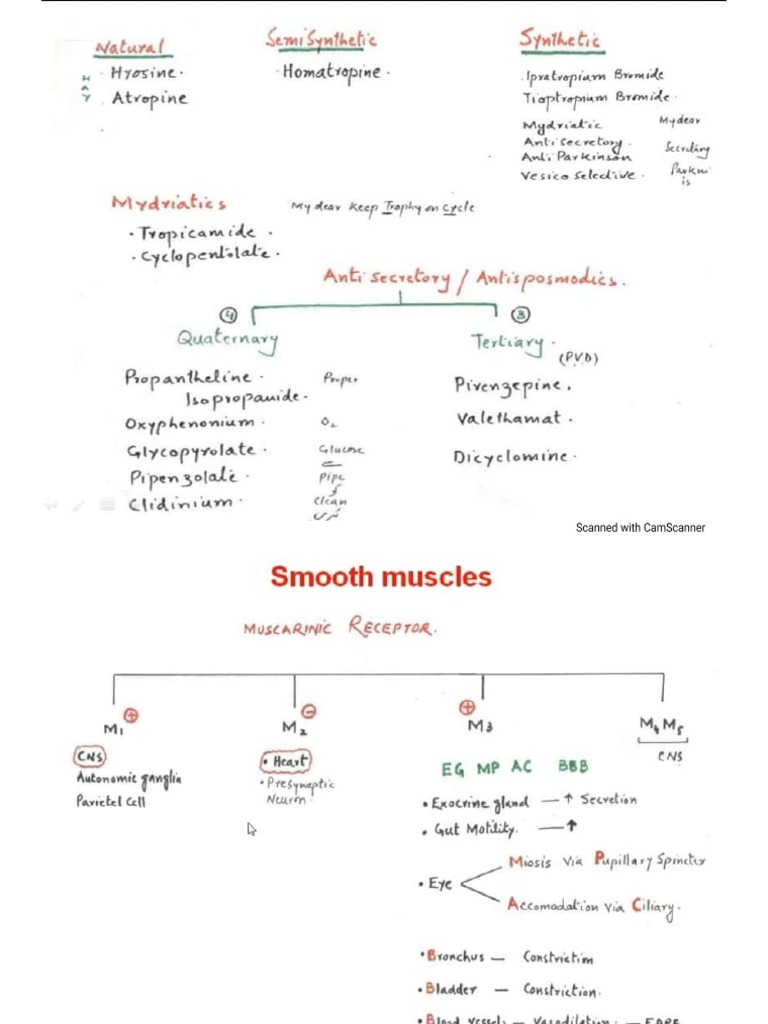 Natural
SemiSynthetic
Synthetic
H
A
Y
• Hyosine.
Atropine
• Homatropine.
• Ipratropium Bromide
Tioptropium Bromide.
Mydriatic
Mydear
Anti secretory.
Secretary
Anti Parkinson
Parkin
Vesico selective.
is
Mydriatics
My dear Keep Trophy on Cycle
• Tropicamide.
• Cyclopentolate.
Anti secretory / Antisposmodics.
④
③
Quaternary
Tertiary.
(PVD)
Propantheline.
Proper
Isopropamide.
Oxyphenonium.
O₂
Glycopyrolate.
Glucose
Pipenzolate.
Pipe
Clidinium.
Clean
Pirenzepine.
Valethamat.
Dicyclomine.
Scanned with CamScanner
Smooth muscles
MUSCARINIC RECEPTOR.
M₁ ⊕
M₂ ⊖
M₃ ⊕
M₄ M₅
CNS
Autonomic ganglia
Parietel Cell
• Heart
• Presynaptic
Neurm.
CNS
EG MP AC BBB
• Exocrine gland — ↑ Secretion
• Gut Motility. — ↑
• Eye
Miosis Via Pupillary Spincter
Accomodation via Ciliary.
• Bronchus — Constrictim
• Bladder — Constriction.
• Blood vessels — Vasodilation — EDRF